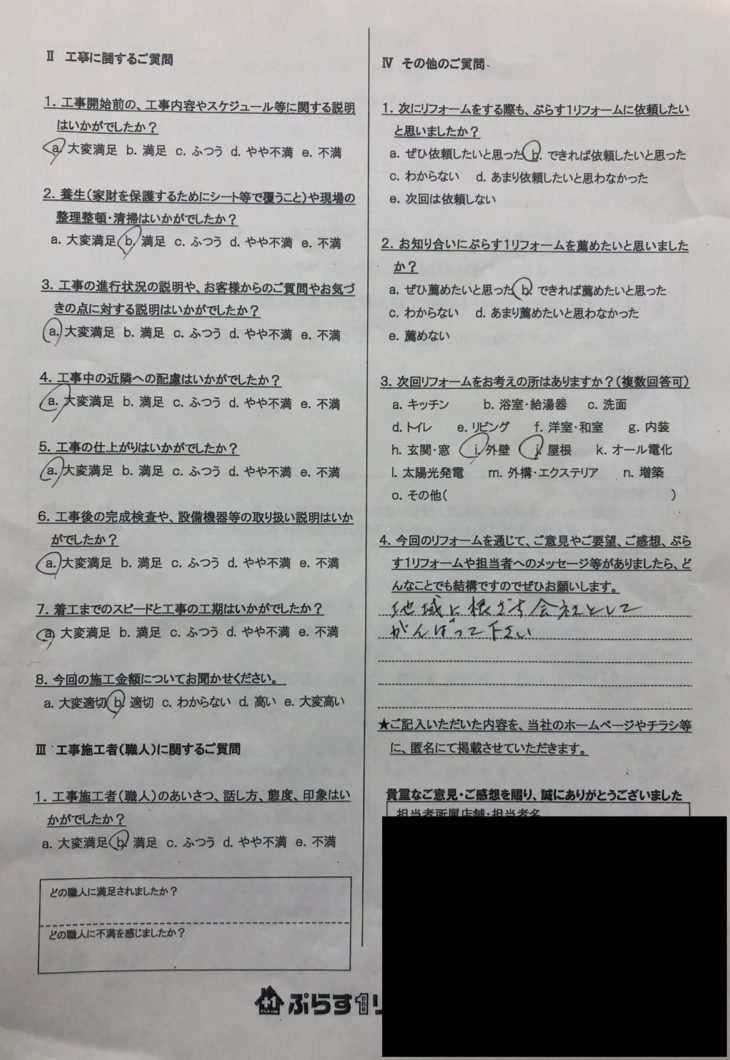 Ⅱ 工事に関するご質問
1. 工事開始前の、工事内容やスケジュール等に関する説明
はいかがでしたか？
a. 大変満足 b. 満足 c. ふつう d. やや不満 e. 不満
2. 養生(家財を保護するためにシート等で覆うこと)や現場の
整理整頓・清掃はいかがでしたか？
a. 大変満足 b. 満足 c. ふつう d. やや不満 e. 不満
3. 工事の進行状況の説明や、お客様からのご質問やお気づ
きの点に対する説明はいかがでしたか？
a. 大変満足 b. 満足 c. ふつう d. やや不満 e. 不満
4. 工事中の近隣への配慮はいかがでしたか？
a. 大変満足 b. 満足 c. ふつう d. やや不満 e. 不満
5. 工事の仕上がりはいかがでしたか？
a. 大変満足 b. 満足 c. ふつう d. やや不満 e. 不満
6. 工事後の完成検査や、設備機器等の取り扱い説明はいか
がでしたか？
a. 大変満足 b. 満足 c. ふつう d. やや不満 e. 不満
7. 着工までのスピードと工事の工期はいかがでしたか？
a. 大変満足 b. 満足 c. ふつう d. やや不満 e. 不満
8. 今回の施工金額についてお聞かせください。
a. 大変適切 b. 適切 c. わからない d. 高い e. 大変高い
Ⅲ 工事施工者(職人)に関するご質問
1. 工事施工者(職人)のあいさつ、話し方、態度、印象はい
かがでしたか？
a. 大変満足 b. 満足 c. ふつう d. やや不満 e. 不満
どの職人に満足されましたか？
どの職人に不満を感じましたか？
Ⅳ その他のご質問
1. 次にリフォームをする際も、ぷらす1リフォームに依頼したい
と思いましたか？
a. ぜひ依頼したいと思った b. できれば依頼したいと思った
c. わからない d. あまり依頼したいと思わなかった
e. 次回は依頼しない
2. お知り合いにぷらす1リフォームを薦めたいと思いました
か？
a. ぜひ薦めたいと思った b. できれば薦めたいと思った
c. わからない d. あまり薦めたいと思わなかった
e. 薦めない
3. 次回リフォームをお考えの所はありますか？(複数回答可)
a. キッチン b. 浴室・給湯器 c. 洗面
d. トイレ e. リビング f. 洋室・和室 g. 内装
h. 玄関・窓 i. 外壁 j. 屋根 k. オール電化
l. 太陽光発電 m. 外構・エクステリア n. 増築
o. その他( )
4. 今回のリフォームを通じて、ご意見やご要望、ご感想、ぷら
す1リフォームや担当者へのメッセージ等がありましたら、ど
んなことでも結構ですのでぜひお願いします。
地域に根ざす会社として
がんばって下さい
★ご記入いただいた内容を、当社のホームページやチラシ等
に、匿名にて掲載させていただきます。
貴重なご意見・ご感想を賜り、誠にありがとうございました
担当者所属店舗・担当者名
+1
ぷらす1リ